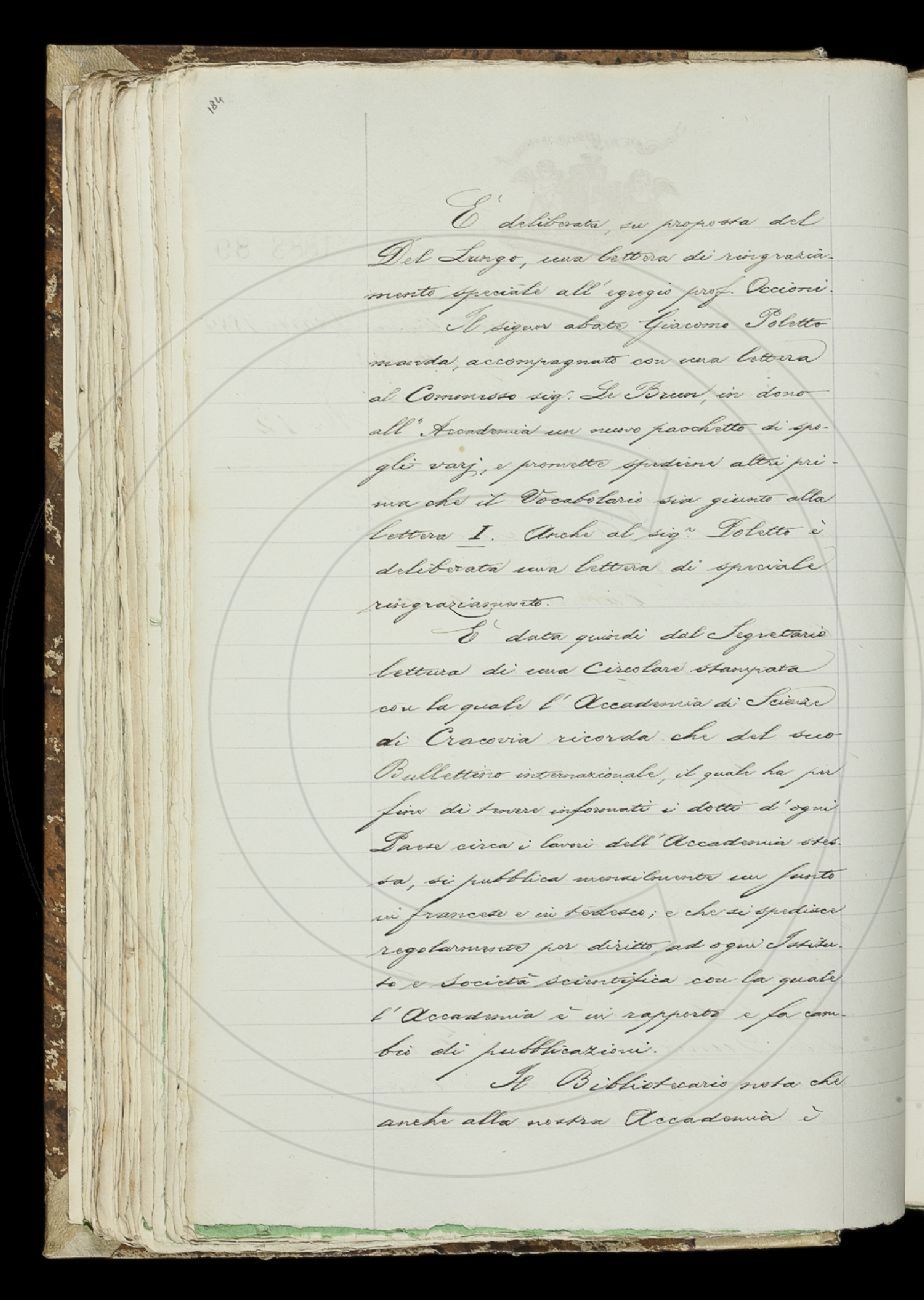 184
E' deliberata, su proposta del
Del Lungo, una lettera di ringrazia-
mento speciale all'egregio prof. Occioni.
Il signor abate Giacomo Poletto
manda, accompagnato con una lettera
al Commesso sig.r Le Brun, in dono
all'Accademia un nuovo pacchetto di spo-
gli varj, e promette spedirne altri pri-
ma che il Vocabolario sia giunto alla
lettera I. Anche al sig.r Poletto è
deliberata una lettera di speciale
ringraziamento.
E' data quindi dal Segretario
lettura di una Circolare stampata
con la quale l'Accademia di Scienze
di Cracovia ricorda che del suo
Bullettino internazionale, il quale ha per
fine di tenere informati i dotti d'ogni
Paese circa i lavori dell'Accademia stes-
sa, si pubblica mensilmente un sunto
in francese e in tedesco; e che si spedisce
regolarmente per diritto, ad ogni Istitu-
to e società scientifica con la quale
l'Accademia è in rapporto e fa cam-
bio di pubblicazioni.
Il Bibliotecario nota che
anche alla nostra Accademia è